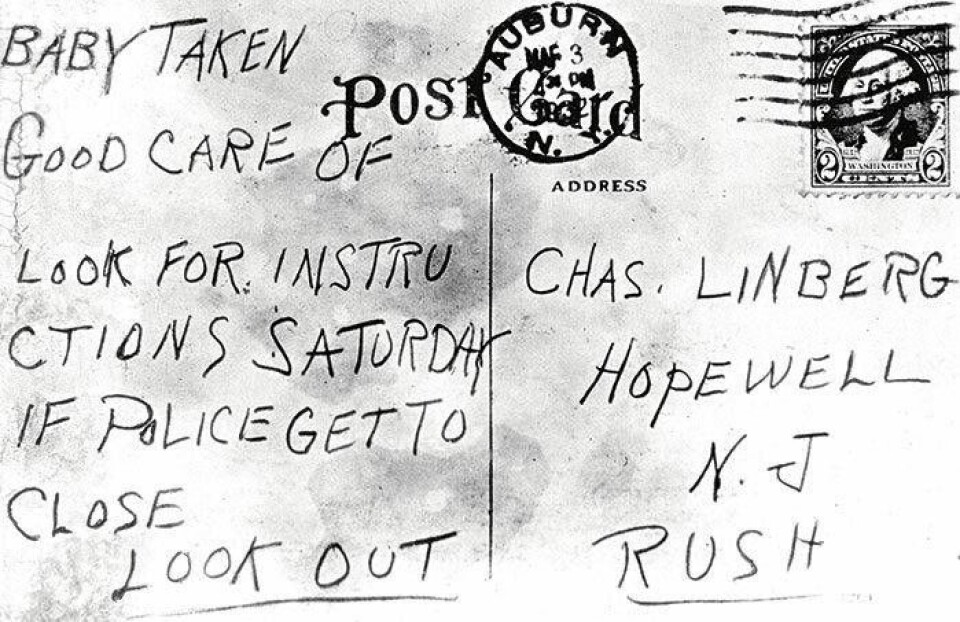 BABY TAKEN
GOOD CARE OF
LOOK FOR. INSTRU
CTIONS SATURDAY
IF POLICE GET TO
CLOSE
LOOK OUT
POST Card
AUBURN
MAR 3
PM
N.
2 WASHINGTON 2
ADDRESS
CHAS. LINBERG
HOPEWELL
N. J
RUSH